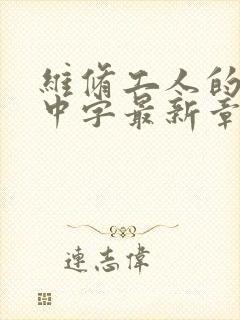 維脩工人的
中字最新章
連志偉